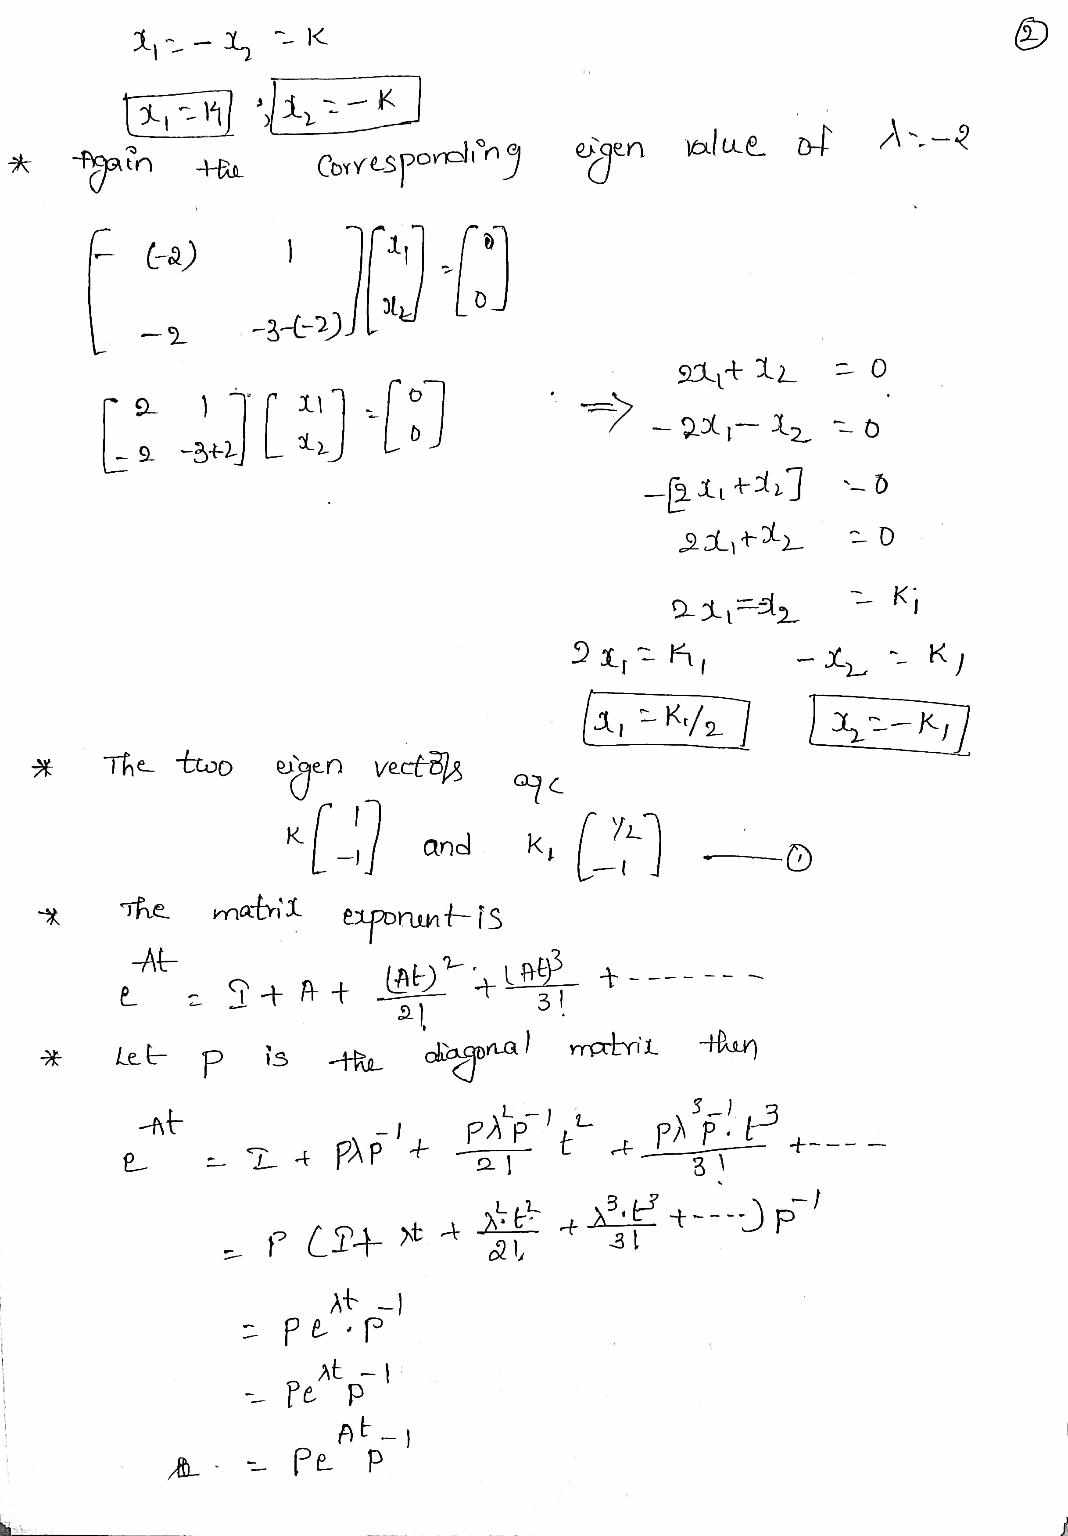 ②
x₁ = - x₂ = K
x₁ = K ; x₂ = - K
* Again the corresponding eigen value of λ = -2
[ - (-2) 1 ; -2 -3-(-2) ] [ x₁ ; x₂ ] = [ 0 ; 0 ]
[ 2 1 ; -2 -3+2 ] [ x₁ ; x₂ ] = [ 0 ; 0 ] ⇒ 2x₁ + x₂ = 0
- 2x₁ - x₂ = 0
-[2x₁ + x₂] = 0
2x₁ + x₂ = 0
2x₁ = -x₂ = K₁
2x₁ = K₁ - x₂ = K₁
x₁ = K₁/2 x₂ = - K₁
* The two eigen vectors are
K [ 1 ; -1 ] and K₁ [ 1/2 ; -1 ] —— ①
* The matrix exponent is
e^At = I + A + (At)²/2! + (At)³/3! + -------
* Let P is the diagonal matrix then
e^At = I + PλP⁻¹ + Pλ²P⁻¹/2! t² + Pλ³P⁻¹.t³/3! + ----
= P (I + λt + λ².t²/2! + λ³.t³/3! + ----) P⁻¹
= Pe^λt . P⁻¹
= Pe^λt P⁻¹
= Pe^At P⁻¹